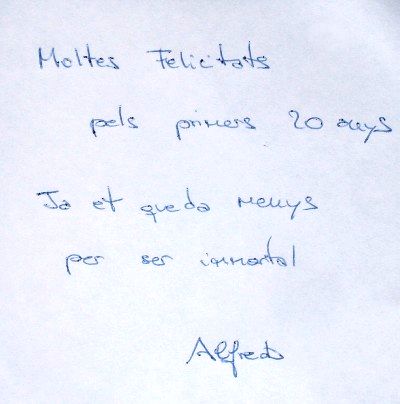 Moltes Felicitats
pels primers 20 anys
Ja et queda menys
per ser immortal
Alfred